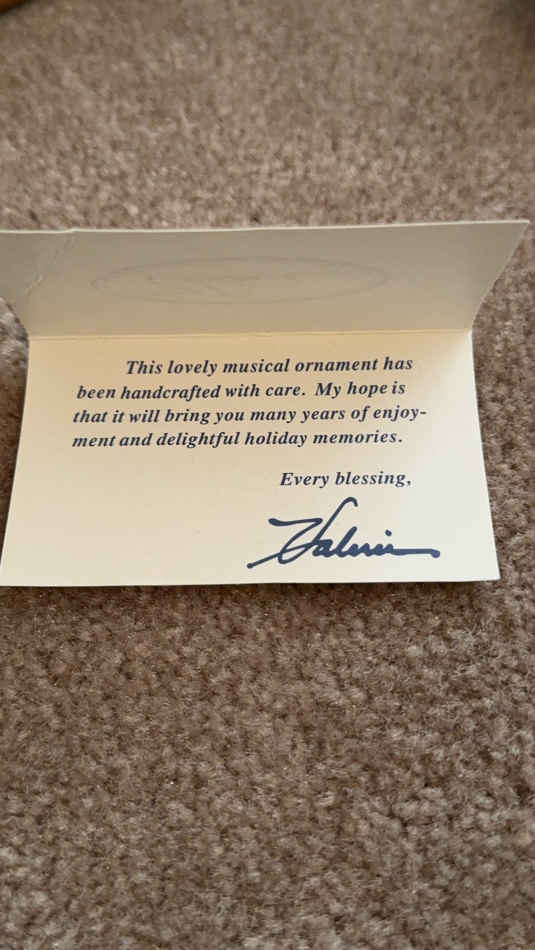 This lovely musical ornament has
been handcrafted with care. My hope is
that it will bring you many years of enjoy-
ment and delightful holiday memories.
Every blessing,
Valerie